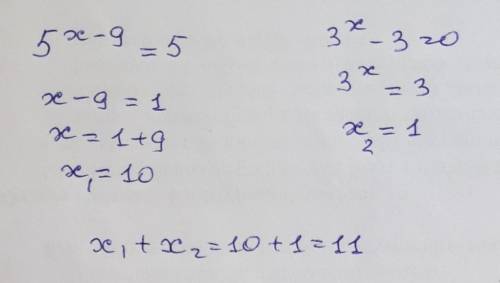 5^(x-9) = 5
x-9 = 1
x = 1+9
x₁ = 10
3^x - 3 = 0
3^x = 3
x₂ = 1
x₁ + x₂ = 10 + 1 = 11